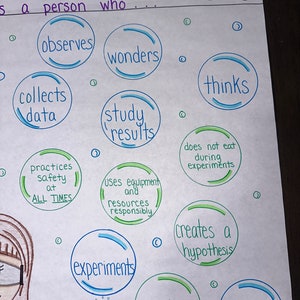 s a person who ...
observes
wonders
thinks
collects
data
study
results
does not eat
during
experiments
practices
safety
at
ALL TIMES
uses equipment
and
resources
responsibly
creates a
hypothesis
experiments